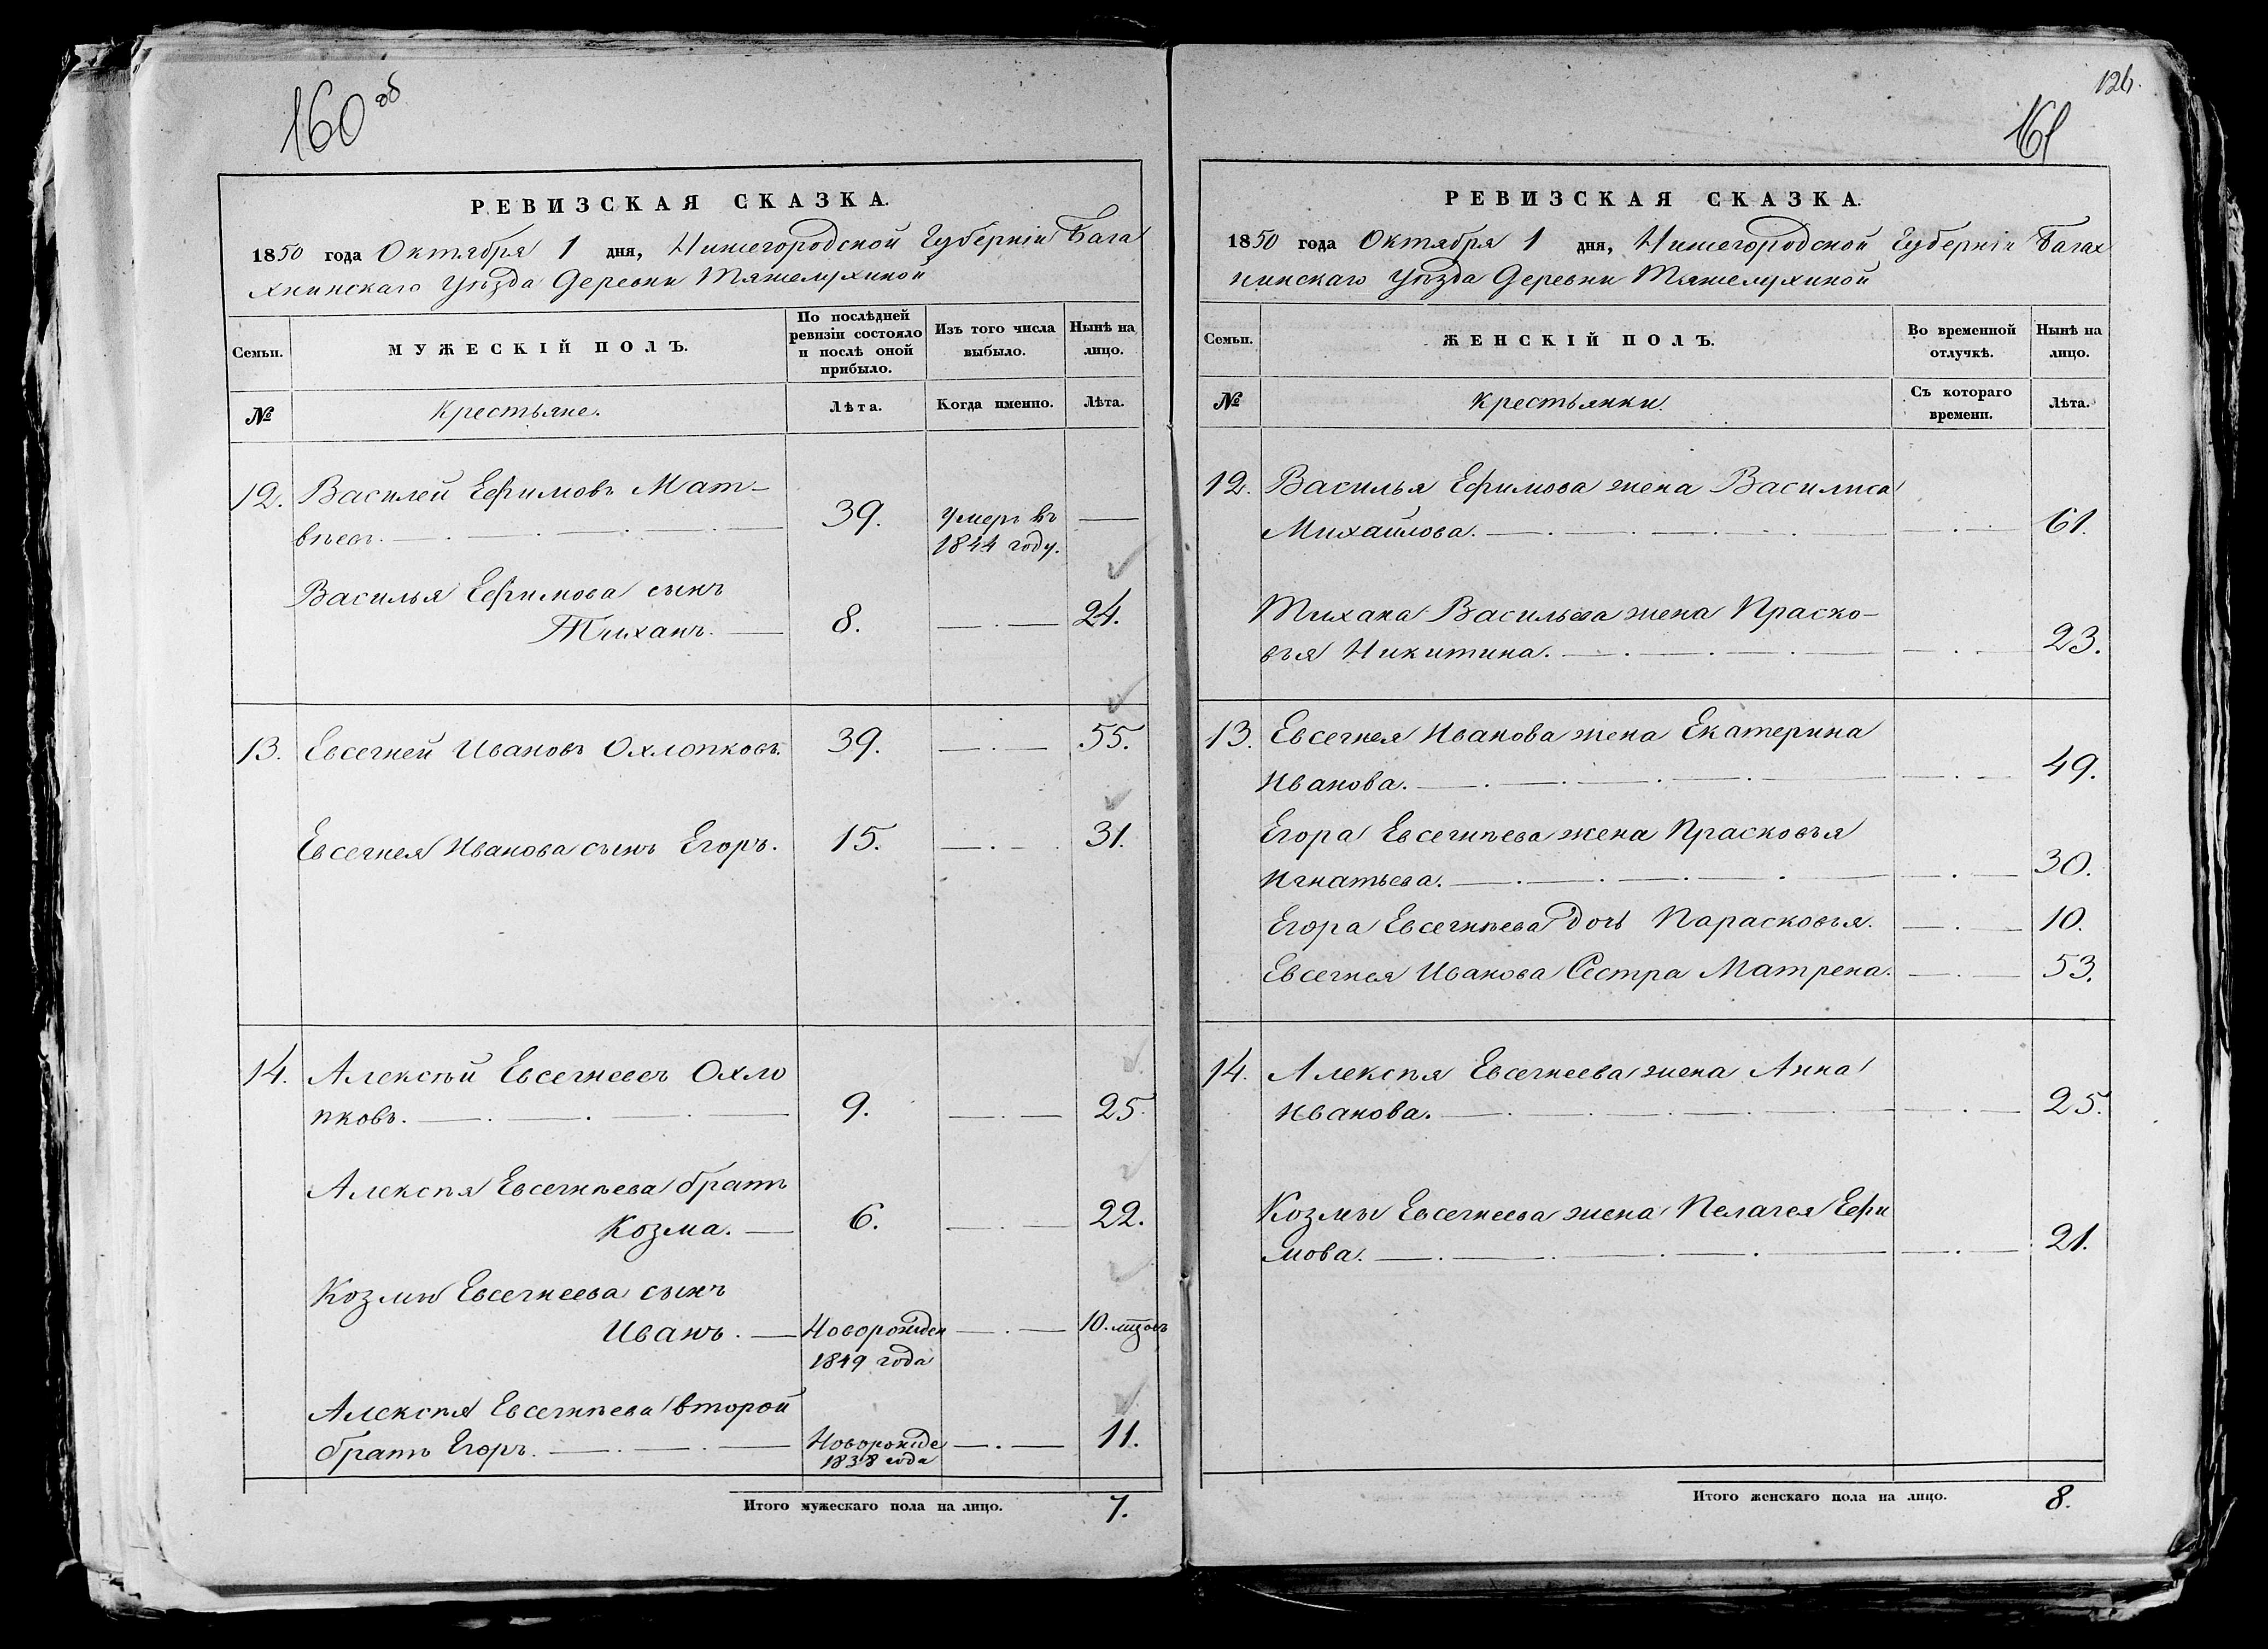 160 об
РЕВИЗСКАЯ СКАЗКА.
1850 года Октября 1 дня, Нижегородской Губерніи Бала
хнинскаго Уѣзда Деревни Тяжелухиной
Семьи.
МУЖЕСКІЙ ПОЛЪ.
По послѣдней
ревизіи состояло
и послѣ оной
прибыло.
Изъ того числа
выбыло.
Нынѣ на
лицо.
№
Крестьяне.
Лѣта.
Когда именно.
Лѣта.
12. Василей Ефимовъ Мат-
вѣевъ. 39. Умеръ въ
1844 году.
Василья Ефимова сынъ
Тиханъ. 8. 24.
13. Евсегней Ивановъ Охлопковъ. 39. 55.
Евсегнея Иванова сынъ Егоръ. 15. 31.
14. Алексѣй Евсегнеевъ Охло
пковъ. 9. 25.
Алексѣя Евсегнѣева братъ
Козма. 6. 22.
Козмы Евсегнеева сынъ
Иванъ. Новорожден 10. мцовъ
1849 года
Алексѣя Евсегнѣева второй
братъ Егоръ. Новорожде 11.
1838 года
Итого мужескаго пола на лицо. 7.
126.
161
РЕВИЗСКАЯ СКАЗКА.
1850 года Октября 1 дня, Нижегородской Губерніи Балах
нинскаго Уѣзда Деревни Тяжелухиной
Семьи.
ЖЕНСКІЙ ПОЛЪ.
Во временной
отлучкѣ.
Нынѣ на
лицо.
№
Крестьянки.
Съ котораго
времени.
Лѣта.
12. Василья Ефимова жена Василиса
Михайлова. 61.
Тихана Васильева жена Праско-
вья Никитина. 23.
13. Евсегнея Иванова жена Екатерина
Иванова. 49.
Егора Евсегнѣева жена Прасковья
Игнатьева. 30.
Егора Евсегнѣева дочь Парасковья. 10.
Евсегнея Иванова Сестра Матрена. 53.
14. Алексѣя Евсегнеева жена Анна
Иванова. 25.
Козмы Евсегнеева жена Пелагея Ефи
мова. 21.
Итого женскаго пола на лицо. 8.